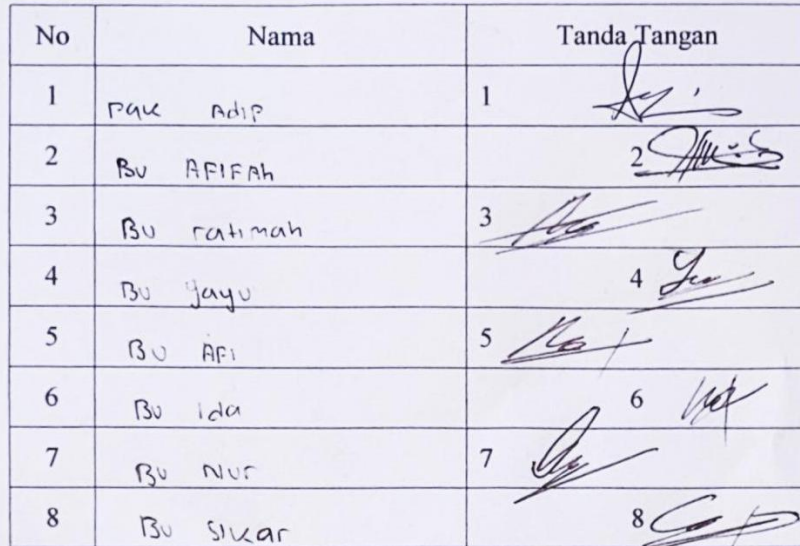 No Nama Tanda Tangan
1 Pak Adip 1
2 Bu AFIFAh 2
3 Bu ratimah 3
4 Bu yayu 4
5 Bu AFi 5
6 Bu Ida 6
7 Bu Nur 7
8 Bu Sikar 8